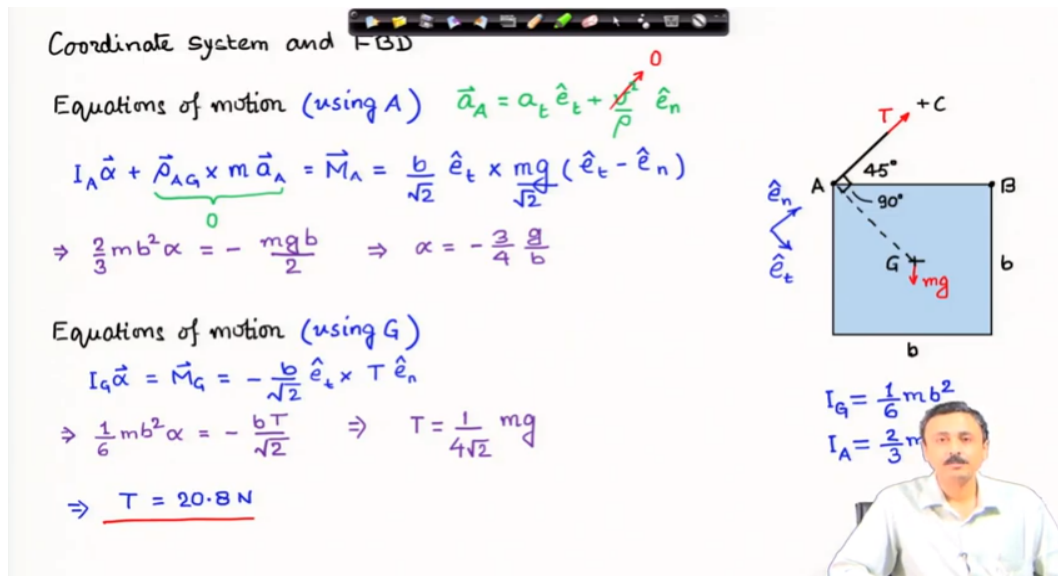 Coordinate system and FBD
Equations of motion (using A) a⃗_A = a_t ê_t + v²/ρ ê_n
0
I_A α⃗ + ρ⃗_AG × m a⃗_A = M⃗_A = b/√2 ê_t × mg/√2 (ê_t - ê_n)
0
⇒ 2/3 mb²α = - mgb/2 ⇒ α = - 3/4 g/b
Equations of motion (using G)
I_G α⃗ = M⃗_G = - b/√2 ê_t × T ê_n
⇒ 1/6 mb²α = - bT/√2 ⇒ T = 1/4√2 mg
⇒ T = 20.8 N
+C
T
45°
A
B
90°
ê_n
ê_t
G
mg
b
b
I_G = 1/6 mb²
I_A = 2/3 m